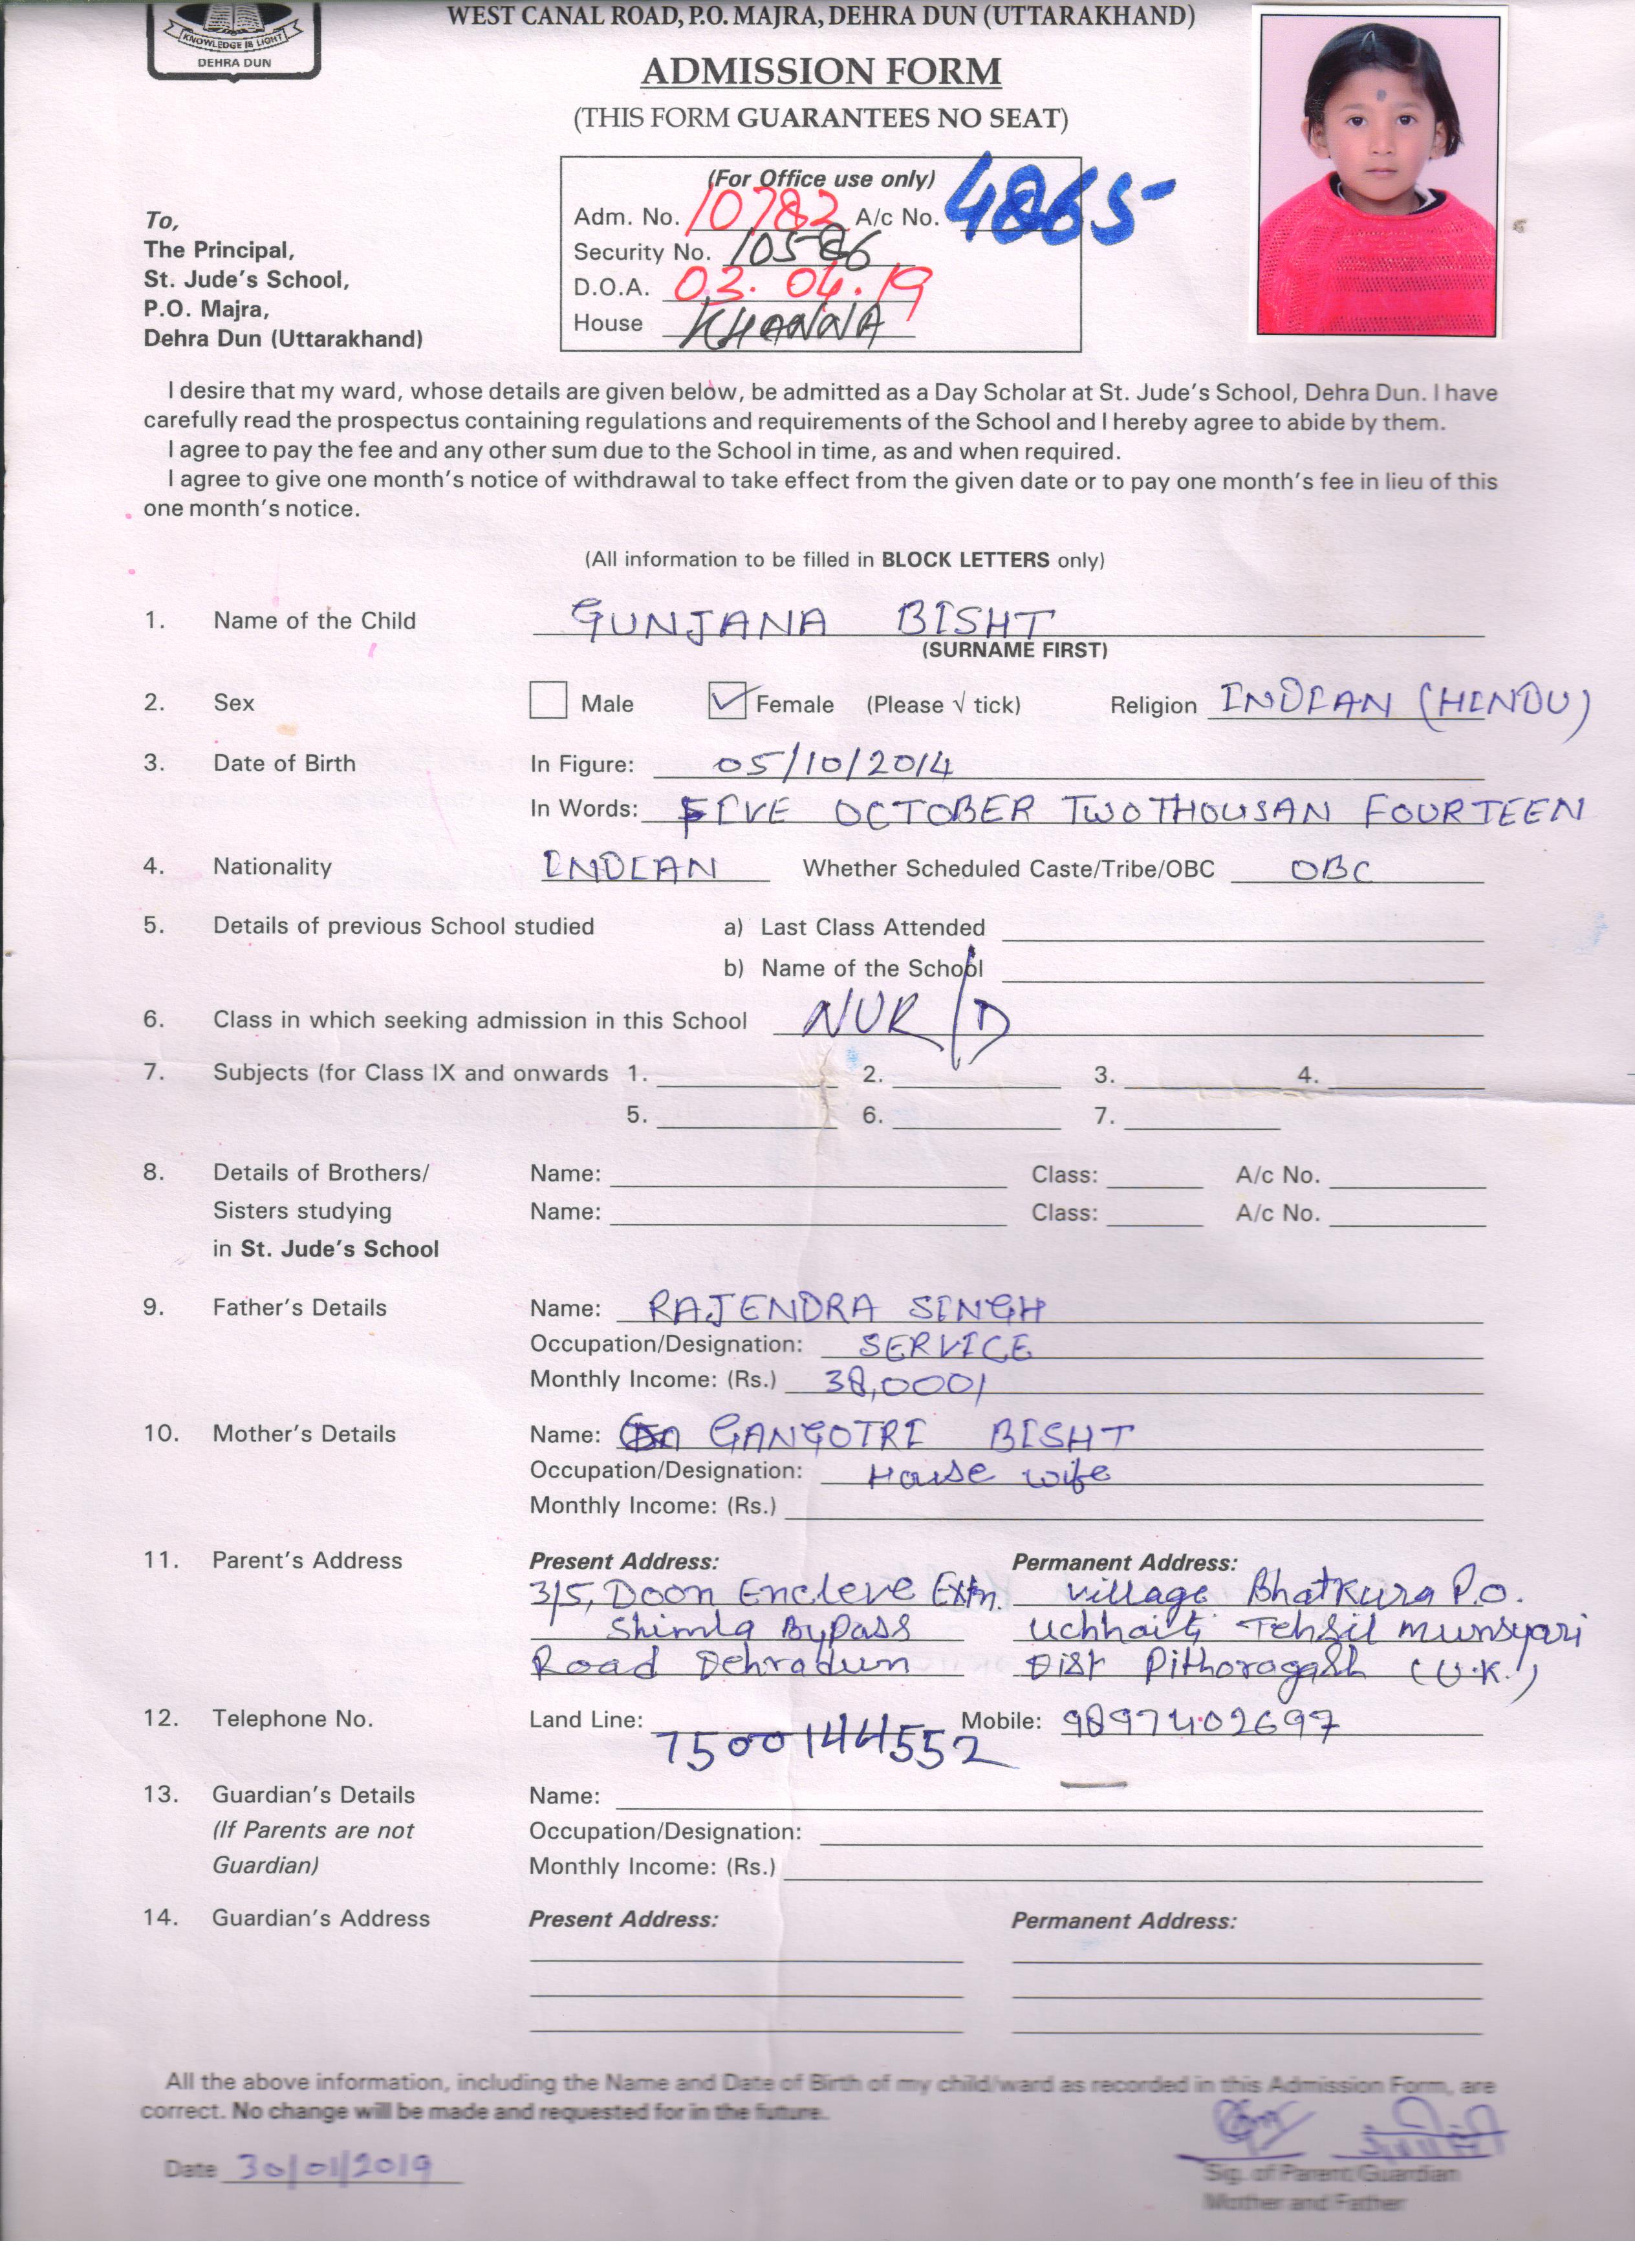 WEST CANAL ROAD, P.O. MAJRA, DEHRA DUN (UTTARAKHAND)
KNOWLEDGE IS LIGHT
DEHRA DUN
ADMISSION FORM
(THIS FORM GUARANTEES NO SEAT)
(For Office use only)
Adm. No. 10782 A/c No. 4865
Security No. 10586
D.O.A. 03.04.19
House KHANNA
To,
The Principal,
St. Jude's School,
P.O. Majra,
Dehra Dun (Uttarakhand)
I desire that my ward, whose details are given below, be admitted as a Day Scholar at St. Jude's School, Dehra Dun. I have
carefully read the prospectus containing regulations and requirements of the School and I hereby agree to abide by them.
I agree to pay the fee and any other sum due to the School in time, as and when required.
I agree to give one month's notice of withdrawal to take effect from the given date or to pay one month's fee in lieu of this
one month's notice.
(All information to be filled in BLOCK LETTERS only)
1. Name of the Child GUNJANA BISHT
(SURNAME FIRST)
2. Sex Male Female (Please √ tick) Religion INDIAN (HINDU)
3. Date of Birth In Figure: 05/10/2014
In Words: FIVE OCTOBER TWO THOUSAN FOURTEEN
4. Nationality INDIAN Whether Scheduled Caste/Tribe/OBC OBC
5. Details of previous School studied a) Last Class Attended
b) Name of the School
6. Class in which seeking admission in this School NUR/D
7. Subjects (for Class IX and onwards 1. 2. 3. 4.
5. 6. 7.
8. Details of Brothers/ Name: Class: A/c No.
Sisters studying Name: Class: A/c No.
in St. Jude's School
9. Father's Details Name: RAJENDRA SINGH
Occupation/Designation: SERVICE
Monthly Income: (Rs.) 38,000/
10. Mother's Details Name: GANGOTRI BISHT
Occupation/Designation: House wife
Monthly Income: (Rs.)
11. Parent's Address Present Address: Permanent Address:
3/5, Doon Encleve Extn. village Bhatkura P.O.
Shimla Bypass Uchhaiti Tehsil munsyari
Road Dehradun Dist Pithoragash (U.K.)
12. Telephone No. Land Line: 7500144552 Mobile: 9897402697
13. Guardian's Details Name:
(If Parents are not Occupation/Designation:
Guardian) Monthly Income: (Rs.)
14. Guardian's Address Present Address: Permanent Address:
All the above information, including the Name and Date of Birth of my child/ward as recorded in this Admission Form, are
correct. No change will be made and requested for in the future.
Date 30/01/2019
Sig. of Parent/Guardian
Mother and Father